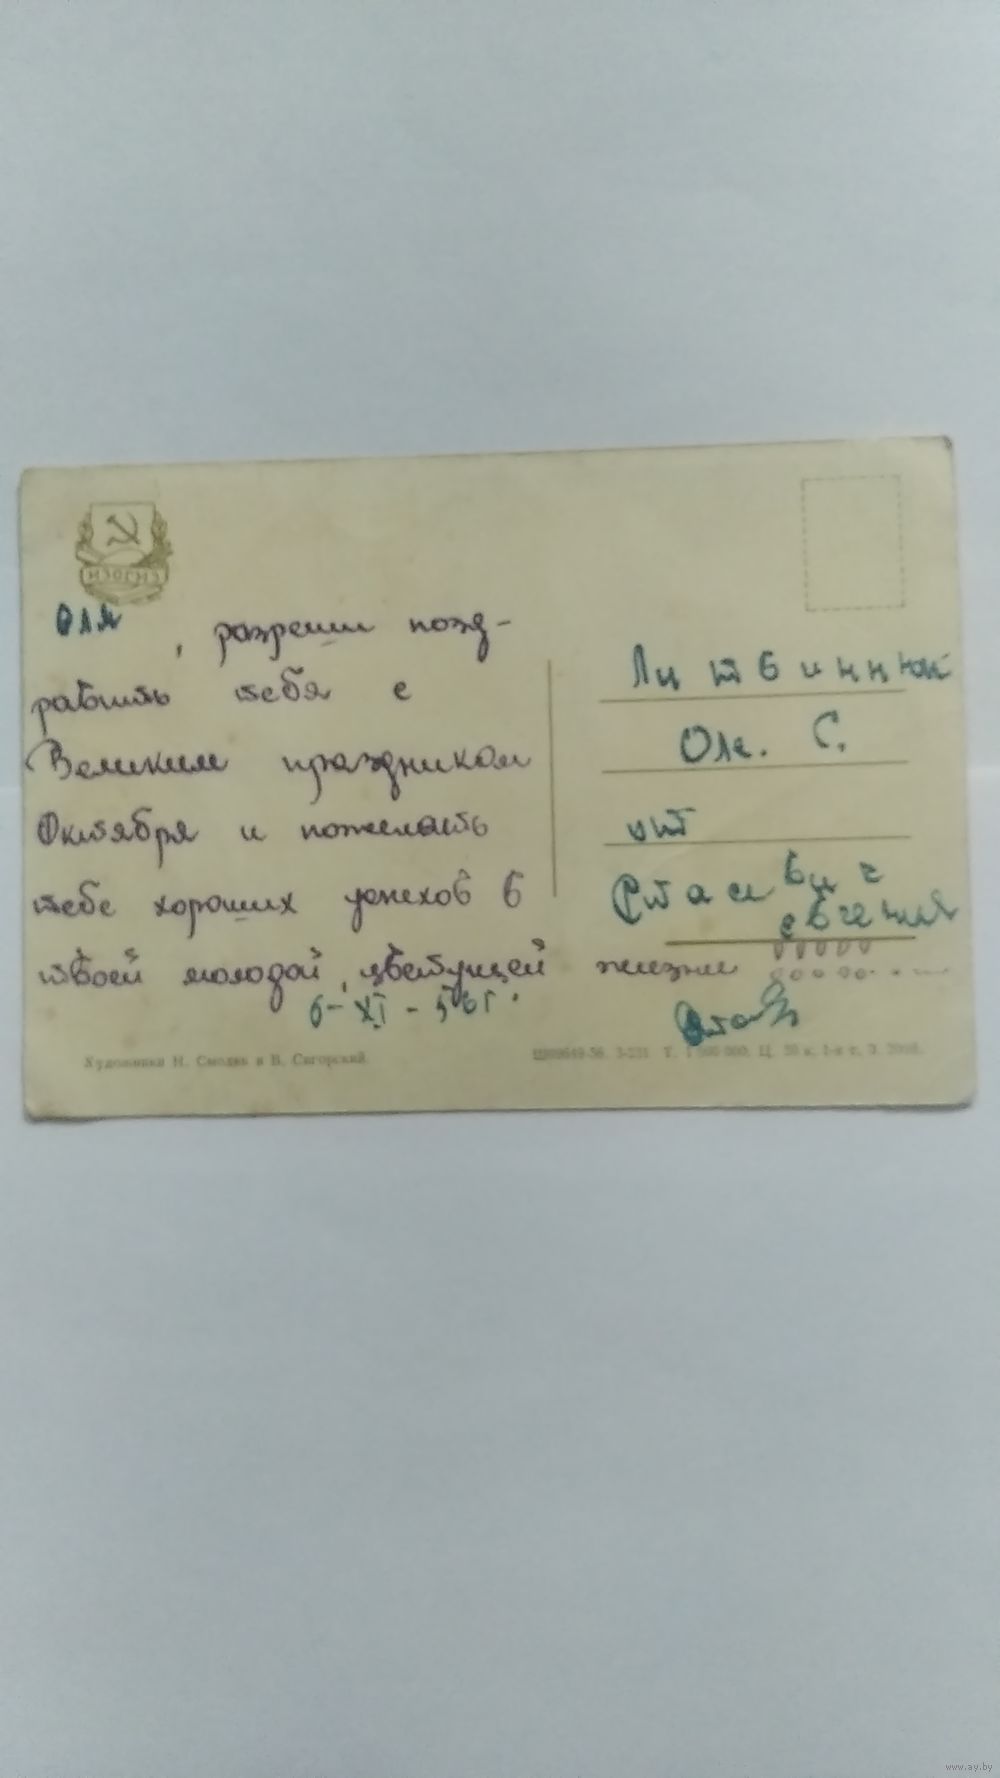 ИЗОГИЗ
Оля, разреши позд-
равить тебя с
Великим праздником
Октября и пожелать
тебе хороших успехов в
твоей молодой, цветущей жизни
6-XI-56г.
Литвиннюк
Оле. С.
от
Стасевич
евгения
Художники Н. Смоляк и В. Сигорский.
www.ay.by